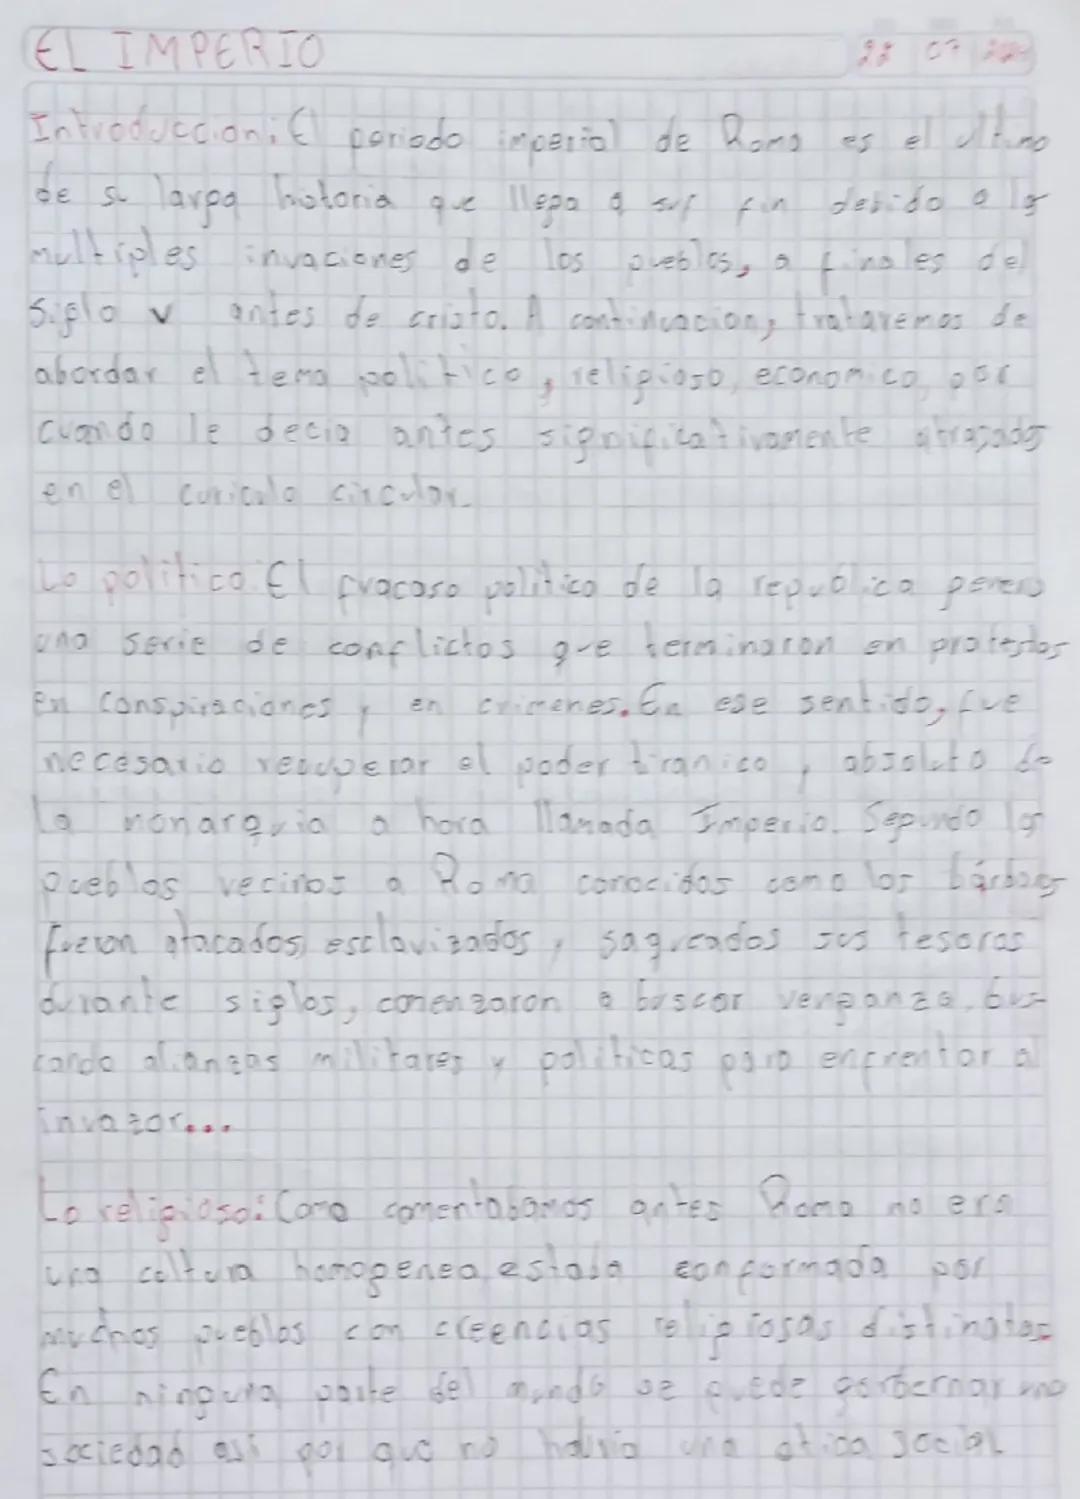 EL IMPERIO 22 07
Introduccion: El periodo imperial de Roma es el ultimo
de su larga historia que llega a sus fin debido a las
multiples invaciones de los pueblos, a finales del
siglo v antes de cristo. A continuacion, trataremos de
abordar el tema politico, religioso, economico, por
cuando le decia antes significativamente atrasados
en el curiculo circular.
Lo politico: El fracaso politico de la republica genero
una serie de conflictos que terminaron en protestas
en conspiraciones y en crimenes. En ese sentido, fue
necesario recuperar el poder tiranico, absoluto de
la monarquia a hora llamada Imperio. Segundo los
pueblos vecinos a Roma conocidos como los bárbaros
fueron atacados, esclavizados, saqueados sus tesoros
durante siglos, comenzaron a buscar venganza, bus-
cando alianzas militares y politicas para enfrentar al
invazor...
Lo religioso: Como comentabamos antes Roma no era
una cultura homogenea, estaba conformada por
muchos pueblos con creencias religiosas distinatas
En ninguna parte del mundo se puede gorbernar una
sociedad asi por que no habria una etica social